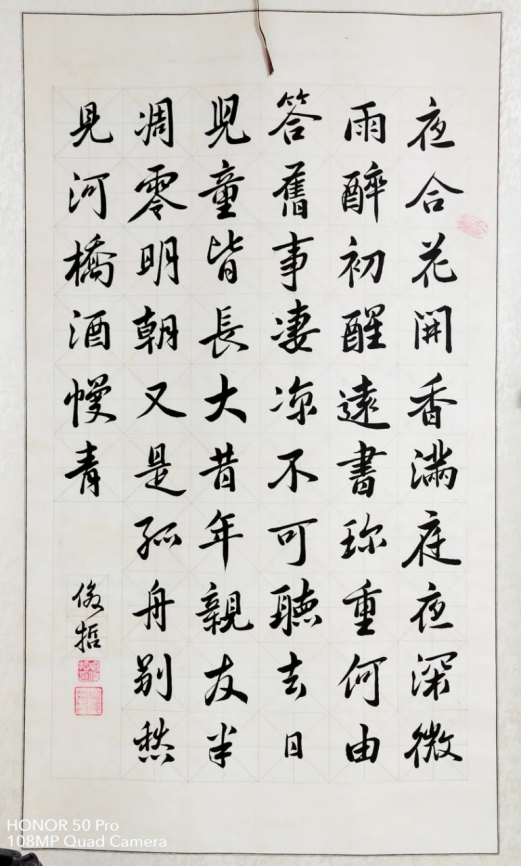 夜合花開香滿庭夜深微
雨醉初醒遠書珎重何由
答舊事凄凉不可聽去日
兒童皆長大昔年親友半
凋零明朝又是孤舟别愁
見河橋酒幔青
俊哲
HONOR 50 Pro
108MP Quad Camera